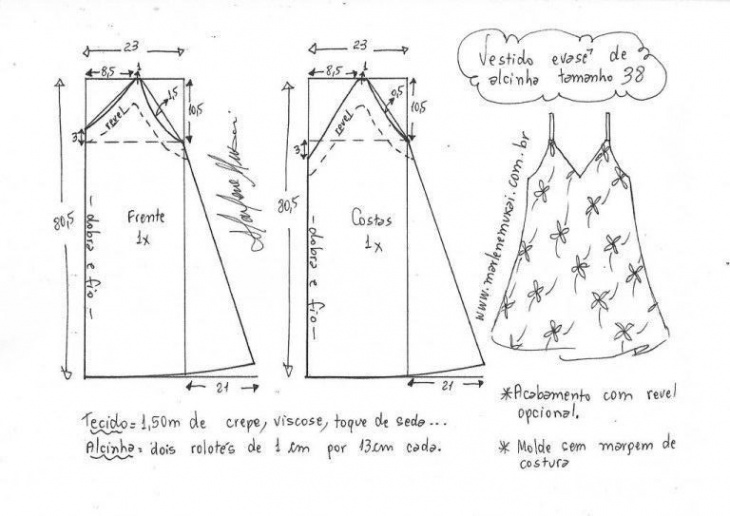 Vestido evasê de
alcinha tamanho 38
23
8,5
1
1,5
10,5
revel
3
80,5
Frente
1x
- dobra e fio -
21
23
8,5
1
0,5
10,5
revel
3
80,5
Costas
1x
- dobra e fio -
21
Marlene Mukai
www.marlenemukai.com.br
*Acabamento com revel
opcional.
* Molde sem margem de
costura
Tecido = 1,50m de crepe, viscose, toque de seda...
Alcinha = dois rolotês de 1 cm por 13cm cada.